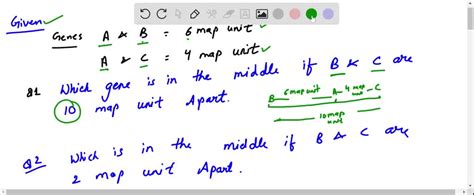 Given
Genes A & B = 6 map unit
A & C = 4 map unit
Q1 Which gene is in the middle if B & C are
10 map unit Apart.
B 6 map unit A 4 map unit C
10 map unit
Q2 Which is in the middle if B & C are
2 map unit Apart.